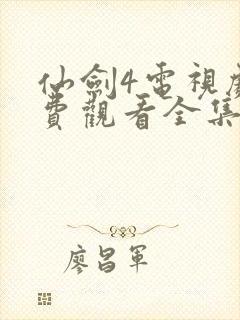 仙劍4電視劇
費觀看全集
廖昌軍